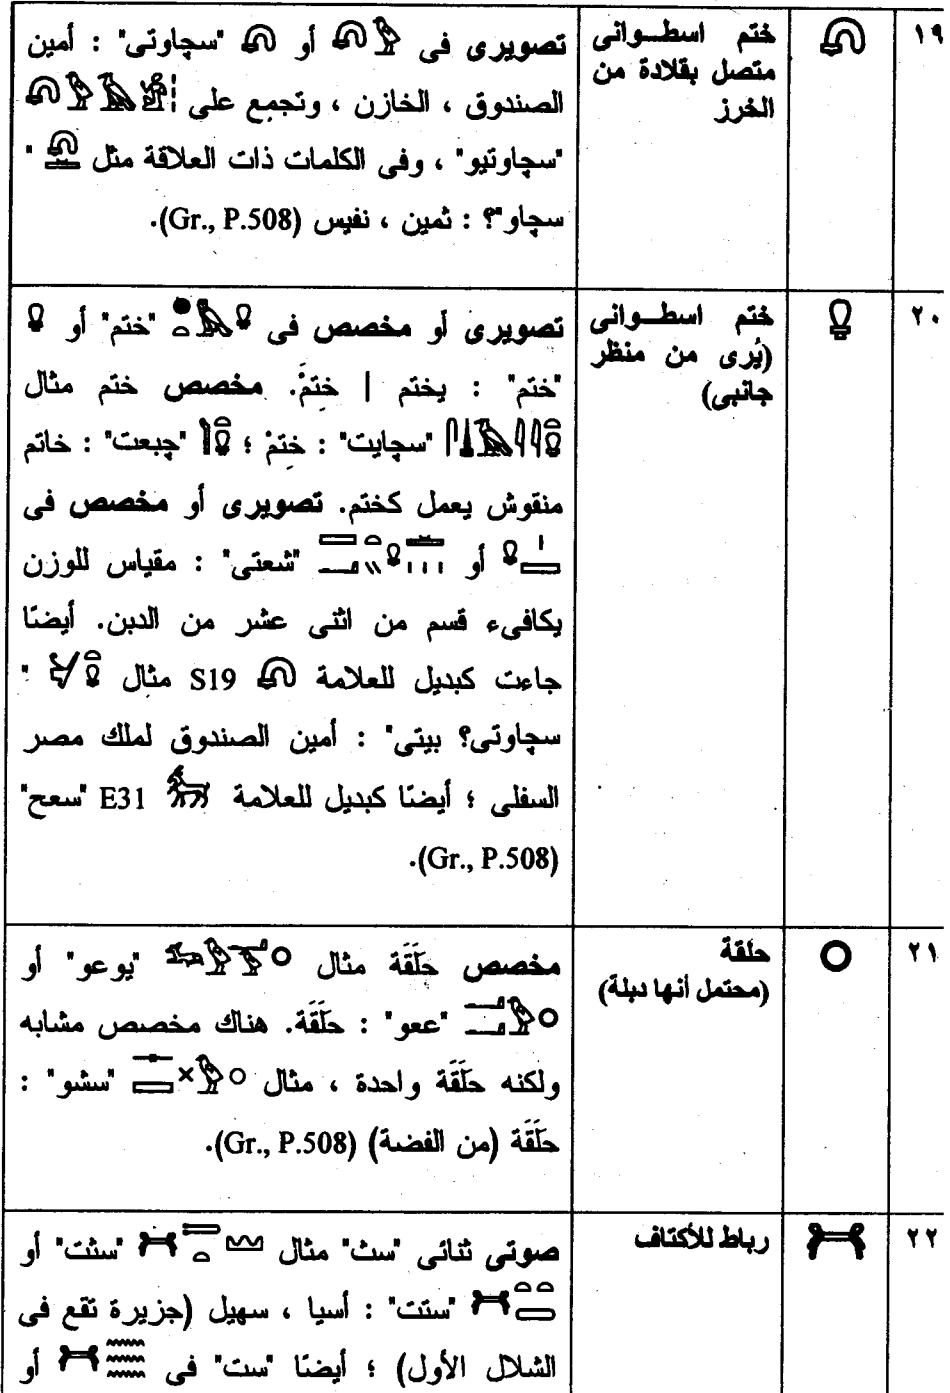 ١٩
ختم اسطوانى
متصل بقلادة من
الخرز
تصويرى فى أو "سچاوتى" : أمين
الصندوق ، الخازن ، وتجمع على
"سچاوتيو" ، وفى الكلمات ذات العلاقة مثل "
سچاو"؟ : ثمين ، نفيس (Gr., P.508).
٢٠
ختم اسطوانى
(يُرى من منظر
جانبى)
تصويرى أو مخصص فى "ختم" أو
"ختم" : يختم | ختمً. مخصص ختم مثال
"سچايت" : ختمْ ؛ "چبعت" : خاتم
منقوش يعمل كختم. تصويرى أو مخصص فى
أو "شعتى" : مقياس للوزن
يكافىء قسم من اثنى عشر من الدبن. أيضًا
جاءت كبديل للعلامة S19 مثال "
سچاوتى؟ بيتى" : أمين الصندوق لملك مصر
السفلى ؛ أيضًا كبديل للعلامة E31 "سعح"
(Gr., P.508).
٢١
حلقة
(محتمل أنها دبلة)
مخصص حَلَقَة مثال "يوعو" أو
"ععو" : حَلَقَة. هناك مخصص مشابه
ولكنه حَلَقَة واحدة ، مثال "سشو" :
حَلَقَة (من الفضة) (Gr., P.508).
٢٢
رباط للأكتاف
صوتى ثنائى "سث" مثال "سثت" أو
"ستت" : أسيا ، سهيل (جزيرة تقع فى
الشلال الأول) ؛ أيضًا "ست" فى أو